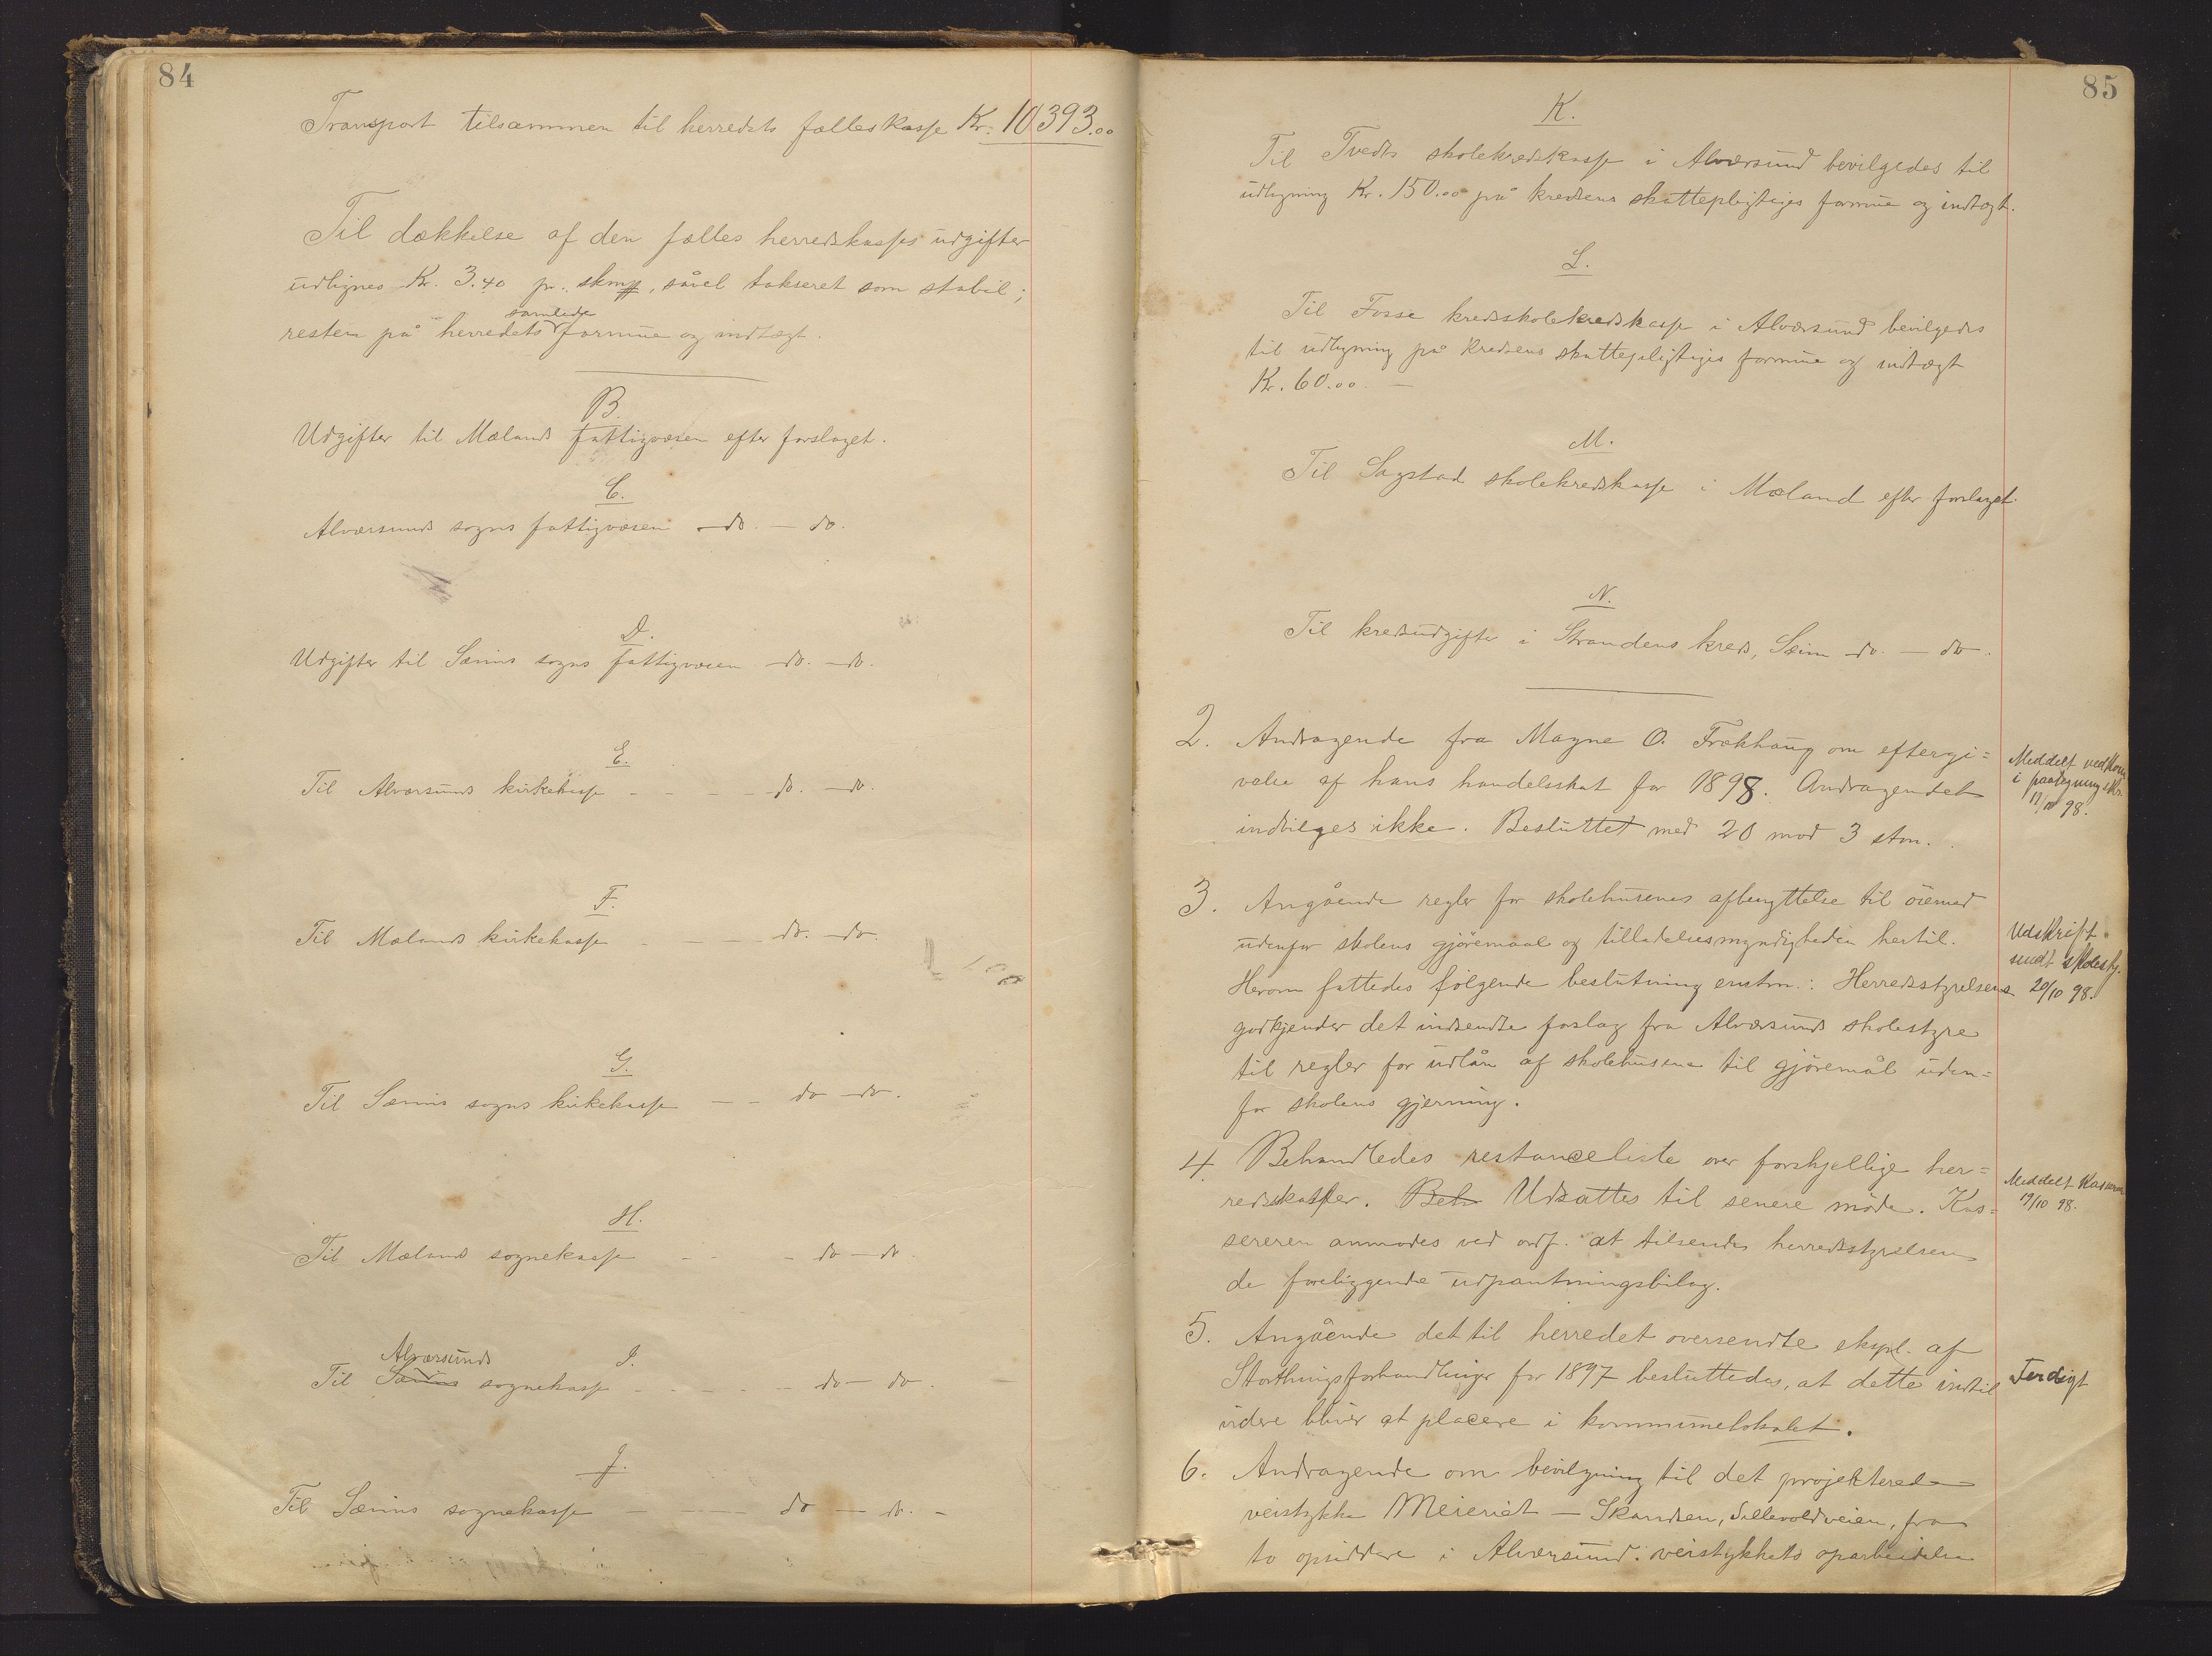 84
Transport tilsammen til herredets fælleskasse Kr. 10393.00
Til dækkelse af den fælles herredskasses udgifter
udlignes Kr. 3.40 pr. skm, såvel takseret som stabil;
samlede
resten på herredets formue og indtægt.
B.
Udgifter til Mælands fattigvæsen efter forslaget.
C.
Alværsunds sogns fattigvæsen - do. - do.
D.
Udgifter til Sæims sogns fattigvæsen - do. - do.
E.
Til Alværsunds kirkekasse - - - - do. - do.
F.
Til Mælands kirkekasse - - - do. - do.
G.
Til Sæims sogns kirkekasse - - do - do.
H.
Til Mælands sognekasse - - do - do.
I.
Alværsunds
Til Sæims sognekasse - - - - - do - do.
J.
Til Sæims sognekasse - - - - do - do. -
85
K.
Til Tvedts skolekredskasse i Alværsund bevilgedes til
udligning Kr. 150.00 på kredsens skattepligtiges formue og indtægt.
L.
Til Fosse kredsskolekredskasse i Alværsund bevilgedes
til udligning på kredsens skattepligtiges formue og indtægt
Kr. 60.00. -
M.
Til Sagstad skolekredskasse i Mæland efter forslaget.
N.
Til kredsudgifter i Strandens kreds, Sæim do. - do.
2. Andragende fra Magne O. Trækhaug om eftergi=
velse af hans handelsskat for 1898. Andragendet
indvilges ikke. Besluttet med 20 mod 3 stm.
Meddelt vedkom
i paategning
98.
3. Angående regler for skolehusenes afbenyttelse til öiemed
udenfor skolens gjöremaal og tilladelsesmyndigheden hertil.
Herom fattedes følgende beslutning enstm.: Herredsstyrelsen
godkjender det indsendte forslag fra Alværsunds skolestyre
til regler for udlån af skolehusene til gjöremål uden=
for skolens gjerning.
Udskrift
sendt skolesty.
20/10 98.
4. Behandledes restanceliste over forskjellige her=
redsskatter. Beh Udsattes til senere møde. Kas=
sereren anmodes ved ordf. at tilsende herredsstyrelsen
de foreliggende udpantningsbilag.
Meddelt Kasserer
19/10 98.
5. Angående det til herredet oversendte ekspl. af
Storthingsforhandlinger for 1897 besluttedes, at dette indtil
videre bliver at placere i kommunelokalet.
Ferdigt
6. Andragende om bevilgning til det projekterede
veistykke Meieriet - Skandsen, Sellevoldveien, fra
to opsiddere i Alværsund. veistykkets oparbeidelse